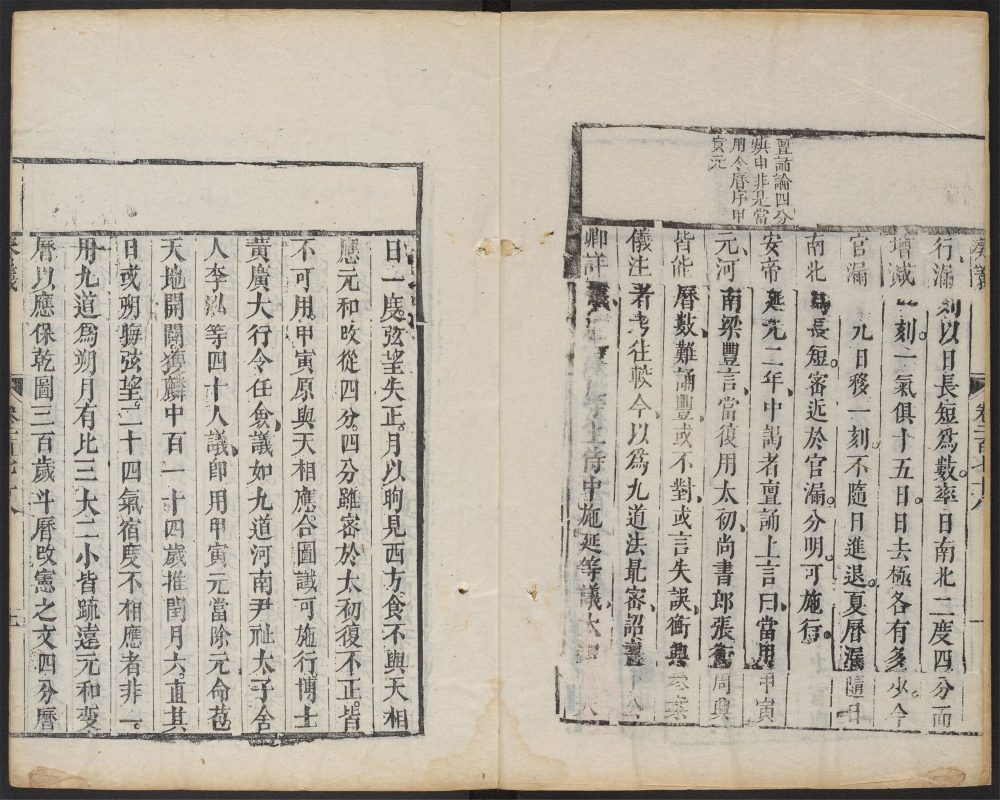 奏議
卷二百七十八
亶誦論四分
與申非是當
用今曆序甲
寅元
行漏刻以日長短爲數率日南北二度四分而
增減一刻一氣俱十五日日去極各有多少今
官漏九日移一刻不隨日進退夏曆漏隨日
南北爲長短密近於官漏分明可施行
安帝延光二年中謁者亶誦上言曰當用甲寅
元河南梁豐言當復用太初尚書郎張衡周興
皆能曆數難誦豐或不對或言失誤衡興
儀注者考往較今以爲九道法最密詔
卿詳議太侍中施延等議太
日一度弦望失正月以晦見西方食不與天相
應元和改從四分四分雖密於太初復不正皆
不可用甲寅原與天相應合圖讖可施行博士
黃廣大行令任僉議如九道河南尹祉太子舍
人李泓等四十人議卽用甲寅元當除元命苞
天地開闢獲麟中百一十四歲推閏月六直其
日或朔晦弦望二十四氣宿度不相應者非一
用九道爲朔月有比三大二小皆疏遠元和變
曆以應保乾圖三百歲斗曆改憲之文四分曆
奏議